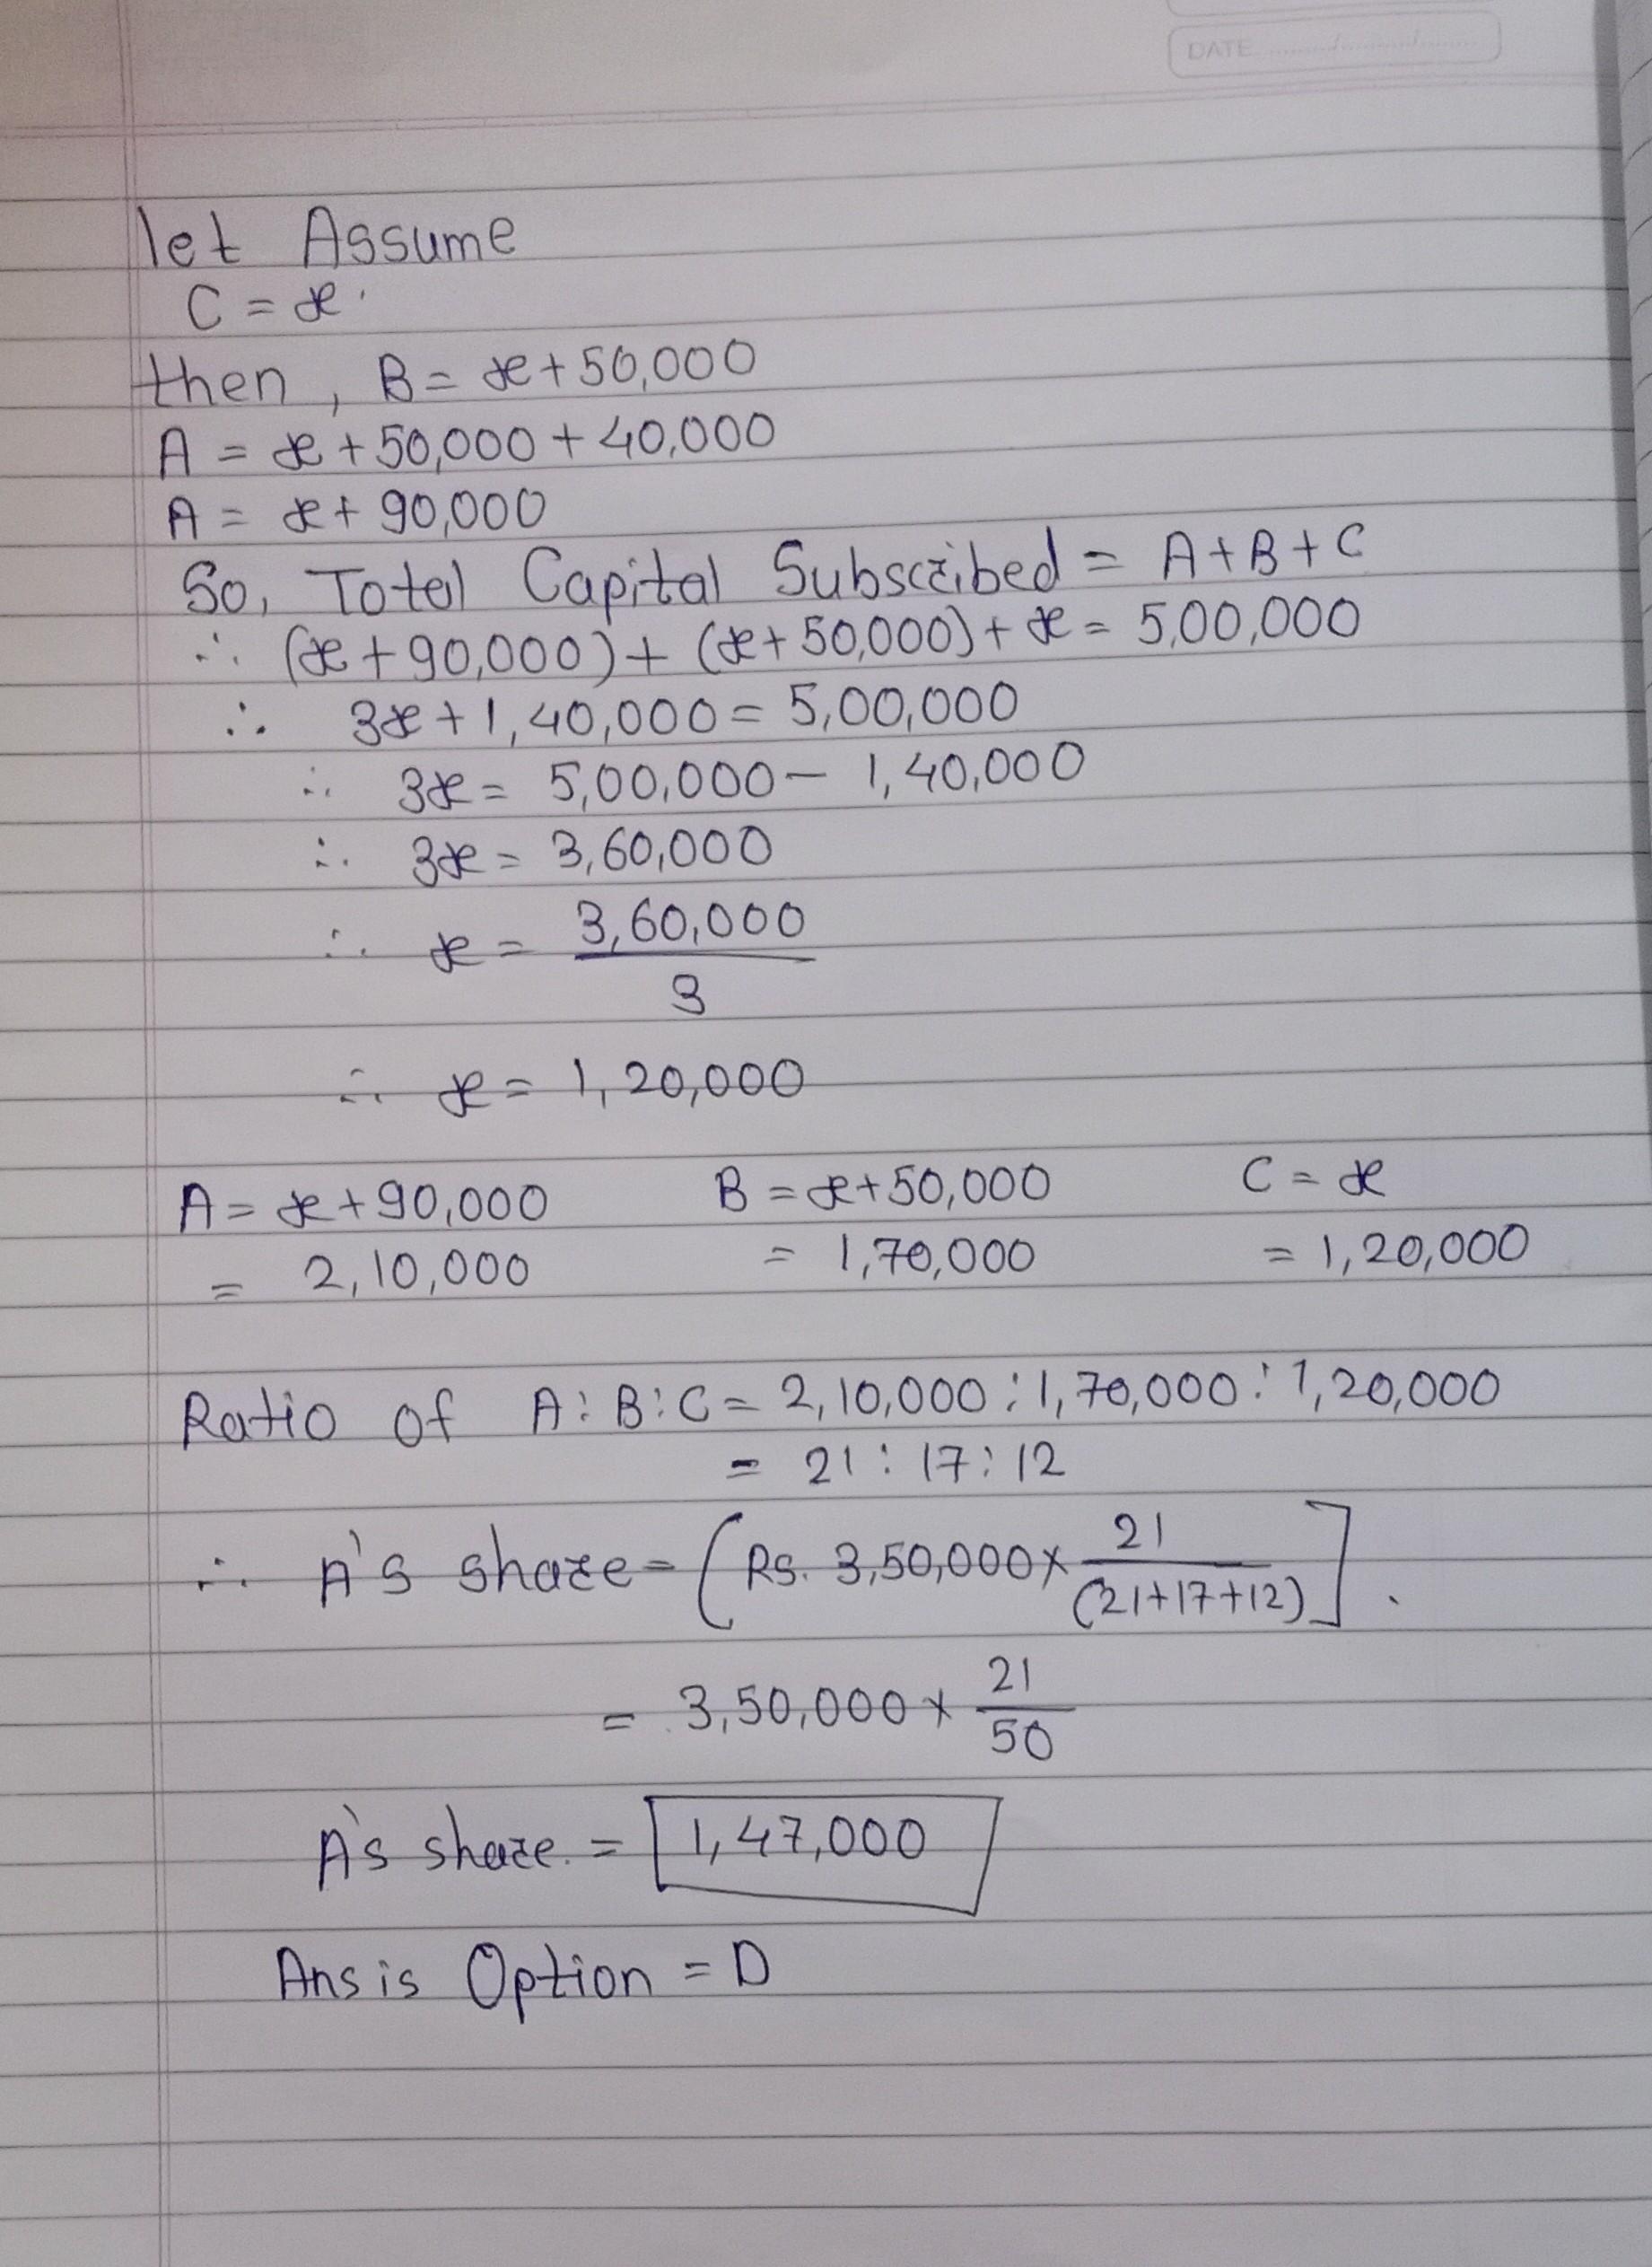 DATE
let Assume
C = x
then, B = x + 50,000
A = x + 50,000 + 40,000
A = x + 90,000
So, Total Capital Subscribed = A + B + C
∴ (x + 90,000) + (x + 50,000) + x = 5,00,000
∴ 3x + 1,40,000 = 5,00,000
∴ 3x = 5,00,000 - 1,40,000
∴ 3x = 3,60,000
∴ x = 3,60,000 / 3
∴ x = 1,20,000
A = x + 90,000 B = x + 50,000 C = x
= 2,10,000 = 1,70,000 = 1,20,000
Ratio of A:B:C = 2,10,000 : 1,70,000 : 1,20,000
= 21 : 17 : 12
∴ A's share = [Rs. 3,50,000 × 21 / (21+17+12)].
= 3,50,000 × 21 / 50
A's share. = 1,47,000
Ans is Option = D